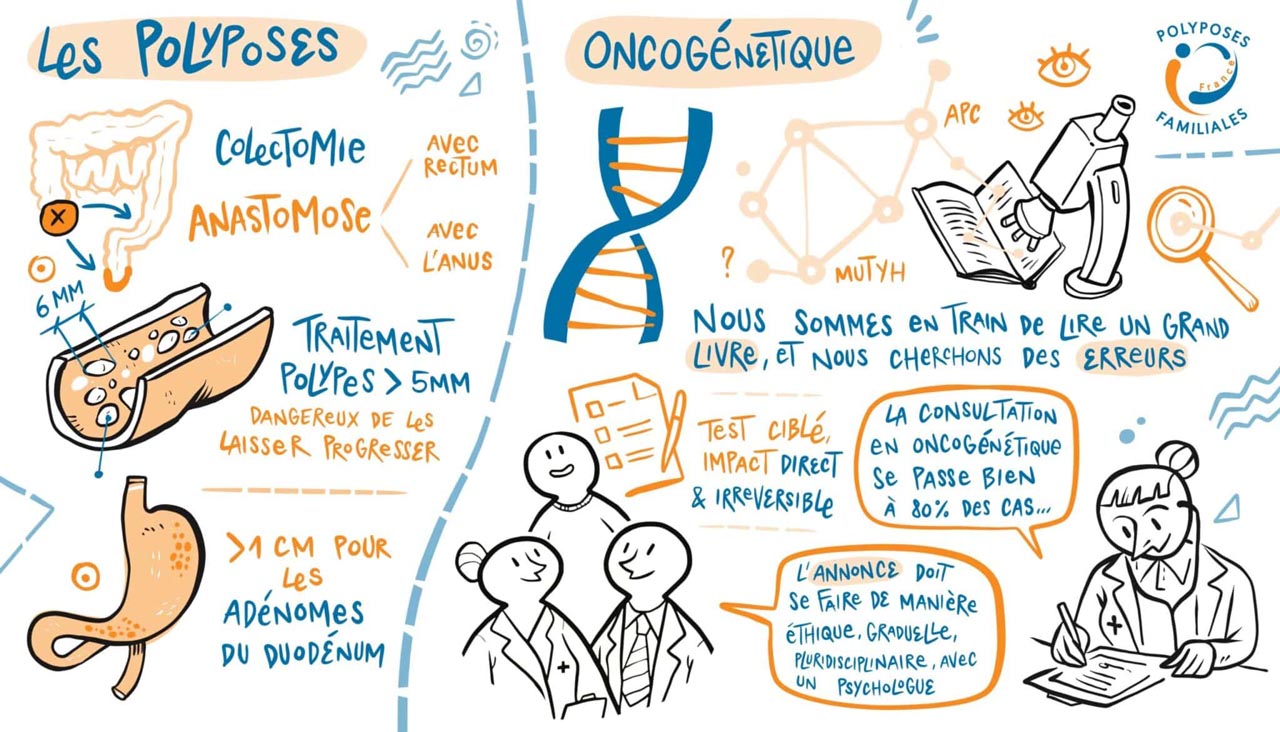 Les POLYPOSES
COLECTOMIE
ANASTOMOSE
AVEC
RECTUM
AVEC
L'ANUS
X
6 MM
TRAITEMENT
POLYPES > 5MM
DANGEREUX DE LES
LAISSER PROGRESSER
>1 CM POUR
LES
ADÉNOMES
DU DUODÉNUM
ONCOGÉNÉTIQUE
APC
?
MUTYH
POLYPOSES
France
FAMILIALES
NOUS SOMMES EN TRAIN DE LIRE UN GRAND
LIVRE, ET NOUS CHERCHONS DES ERREURS
TEST CIBLÉ,
IMPACT DIRECT
& IRREVERSIBLE
LA CONSULTATION
EN ONCOGÉNÉTIQUE
SE PASSE BIEN
À 80% DES CAS...
L'ANNONCE DOIT
SE FAIRE DE MANIÈRE
ÉTHIQUE, GRADUELLE,
PLURIDISCIPLINAIRE, AVEC
UN PSYCHOLOGUE